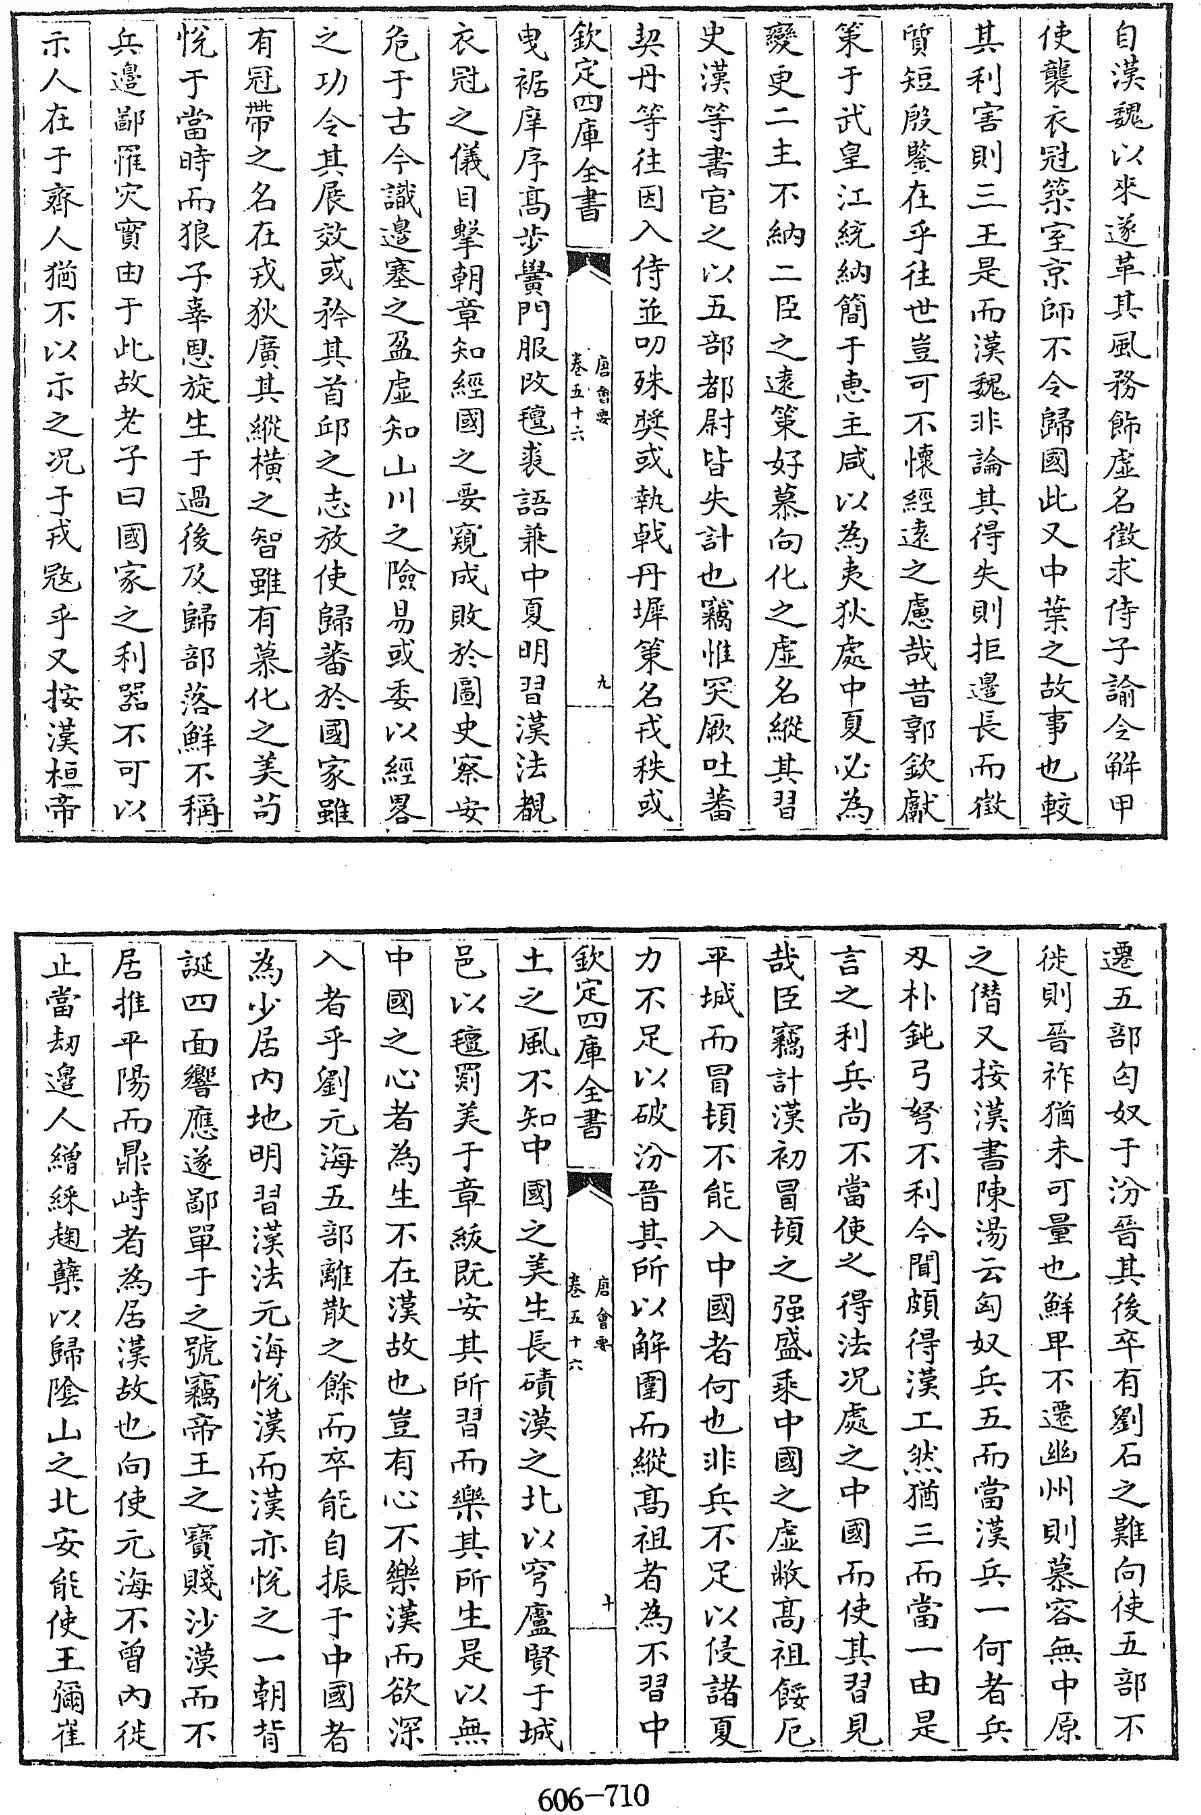 自漢魏以來遂革其風務飾虛名徵求侍子諭令解甲
使襲衣冠築室京師不令歸國此又中葉之故事也較
其利害則三王是而漢魏非論其得失則拒邊長而徵
質短殷鑒在乎往世豈可不懷經遠之慮哉昔郭欽獻
策于武皇江統納簡于惠主咸以為夷狄處中夏必為
變更二主不納二臣之遠策好慕向化之虛名縱其習
史漢等書官之以五部都尉皆失計也竊惟突厥吐蕃
契丹等往因入侍並叨殊奬或執戟丹墀策名戎秩或
欽定四庫全書
唐會要
卷五十六
九
曳裾庠序髙步黌門服改氊裘語兼中夏明習漢法覩
衣冠之儀目擊朝章知經國之要窺成敗於圖史察安
危于古今識邊塞之盈虛知山川之險易或委以經畧
之功令其展效或矜其首邱之志放使歸蕃於國家雖
有冠帶之名在戎狄廣其縱橫之智雖有慕化之美茍
悅于當時而狼子辜恩旋生于過後及歸部落鮮不稱
兵邊鄙罹灾實由于此故老子曰國家之利器不可以
示人在于齊人猶不以示之况于戎𡨥乎又按漢桓帝
遷五部匈奴于汾晉其後卒有劉石之難向使五部不
徙則晉祚猶未可量也鮮卑不遷幽州則慕容無中原
之僭又按漢書陳湯云匈奴兵五而當漢兵一何者兵
刄朴鈍弓弩不利今聞頗得漢工然猶三而當一由是
言之利兵尚不當使之得法况處之中國而使其習見
哉臣竊計漢初冒頓之强盛乘中國之虛敝髙祖餒厄
平城而冒頓不能入中國者何也非兵不足以侵諸夏
力不足以破汾晉其所以解圍而縱髙祖者為不習中
欽定四庫全書
唐會要
卷五十六
十
土之風不知中國之美生長磧漠之北以穹廬賢于城
邑以氊罽美于章紱既安其所習而樂其所生是以無
中國之心者為生不在漢故也豈有心不樂漢而欲深
入者乎劉元海五部離散之餘而卒能自振于中國者
為少居内地明習漢法元海悅漢而漢亦悅之一朝背
誕四面響應遂鄙單于之號竊帝王之寶賤沙漠而不
居推平陽而鼎峙者為居漢故也向使元海不曾内徙
止當刼邊人繒綵麹糵以歸隂山之北安能使王彌崔
606-710